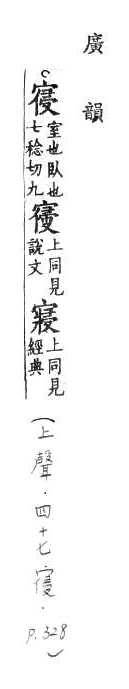 廣韻
寑室也臥也七稔切九 上同見說文寢上同見經典
(上聲.四十七寑.
P.328